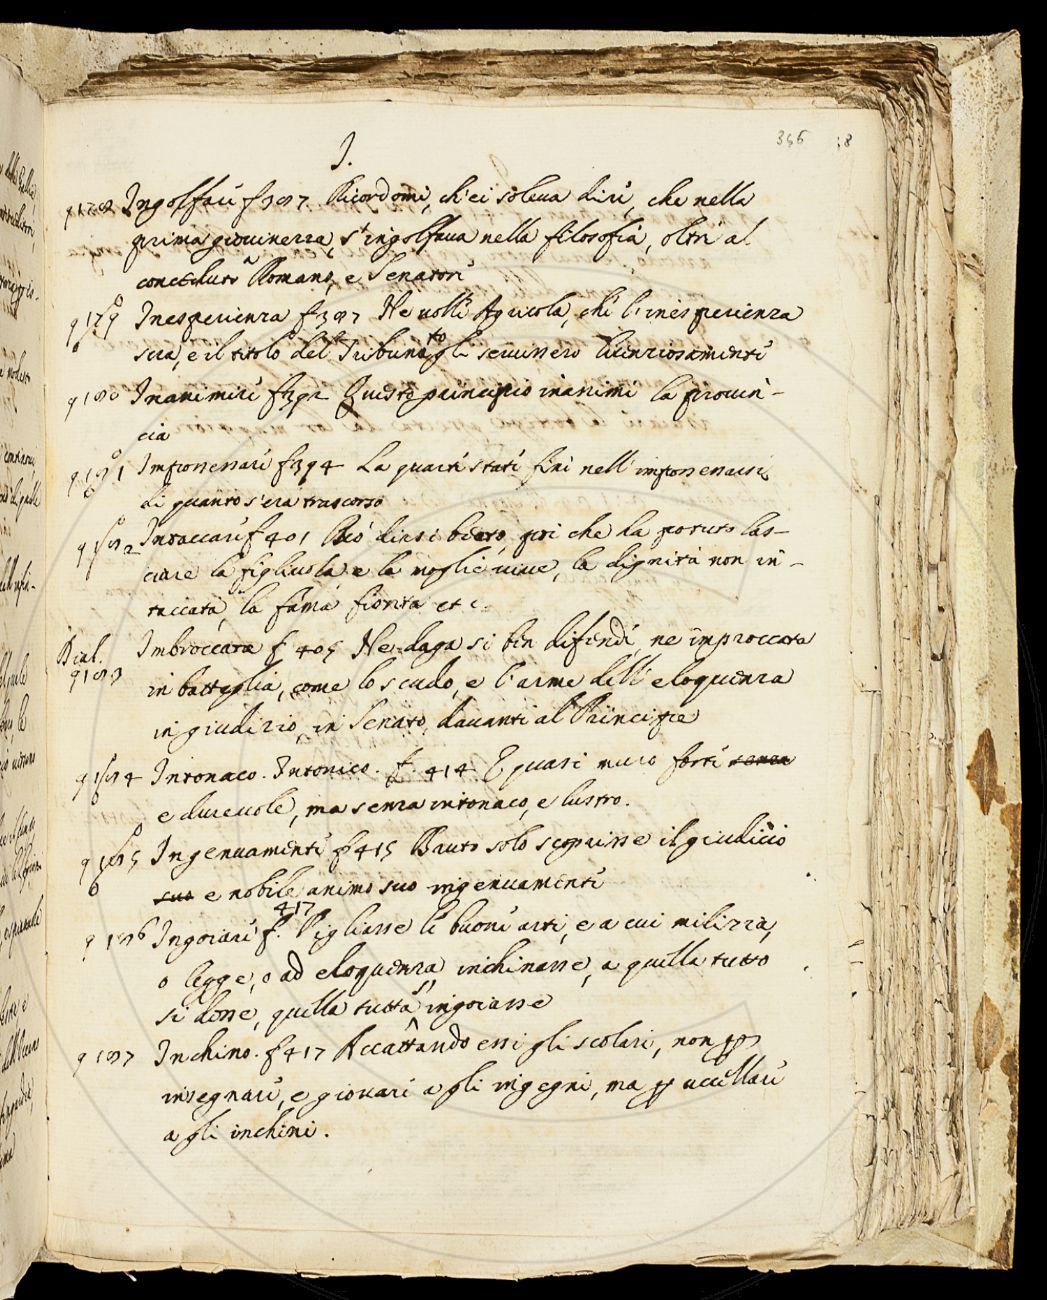 I.
356
Ingolfare f 387 Ricordomi, ch'ei soleva dire, che nella
prima giovinezza, s'ingolfava nella filosofia, oltre al
conceduto Romano, e Senatore
Inesperienza f 387 Ne volle Agricola, che l'inesperienza
sua, e il titolo del Tribunato gli servissero licenziosamente
Inanimire f 392 Questo principio inanimì la provin-
cia
Impossessare f 394 La quarte state finì nell'impossessarsi
di quanto s'era trascorso
Intaccare f 401 Può dirsi beato, poi che ha potuto las-
ciare la figliuola e la moglie vive, la dignità non in-
taccata, la fama fiorita etc.
Dial. Imbroccata f 405 Ne daga si ben difende, ne improccata
in battaglia, come lo scudo, e l'arme dell'eloquenza
in giudizio, in Senato, davanti al Principe
Intonaco. Intonico. f. 414 È quasi muro forte senza
e durevole, ma senza intonaco, e lustro.
Ingenuamente f 415 Bruto solo scoprisse il giudicio
suo e nobile animo suo ingenuamente
Ingoiare f. 417 Pigliasse le buone arti, e a cui milizia,
o legge, o ad eloquenza, inchinasse, a quella tutto
si desse, quella tutta s'ingoiasse
Inchino. f 417 Accattando essi gli scolari, non p
insegnare, e giovare agli ingegni, ma p uccellare
agli inchini.